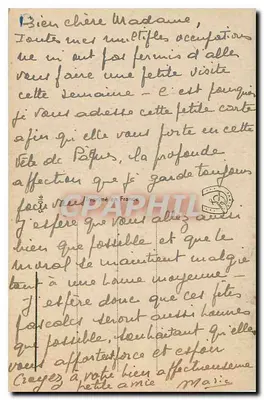 Bien chère Madame,
Toutes mes multiples occupations
ne m'ont pas permis d'aller
vous faire une petite visite
cette semaine - C'est pourquoi
je vous adresse cette petite carte
afin qu'elle vous porte en cette
fête de Pâques, la profonde
affection que je garde toujours
pour vous.
J'espère que vous allez aussi
bien que possible et que le
moral se maintient malgré
tout à une bonne moyenne -
J'espère donc que ces fêtes
pascales seront aussi bonnes
que possible, souhaitant qu'elles
vous apportent force et espoir
Croyez à votre bien affectueuse
petite amie Marie
CPAPHIL